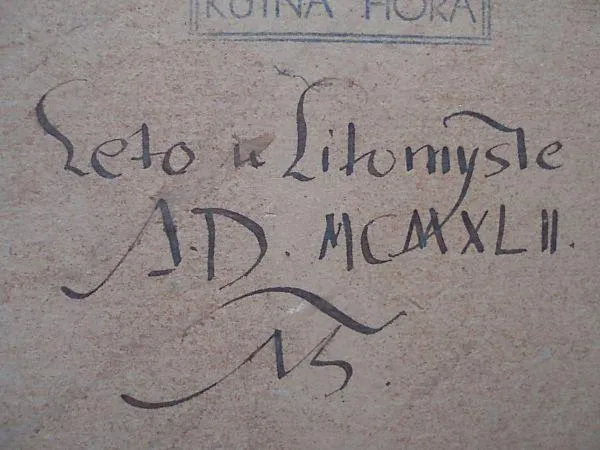 KUTNÁ HORA
Leto u Litomyšle
A.D. MCMXLII.